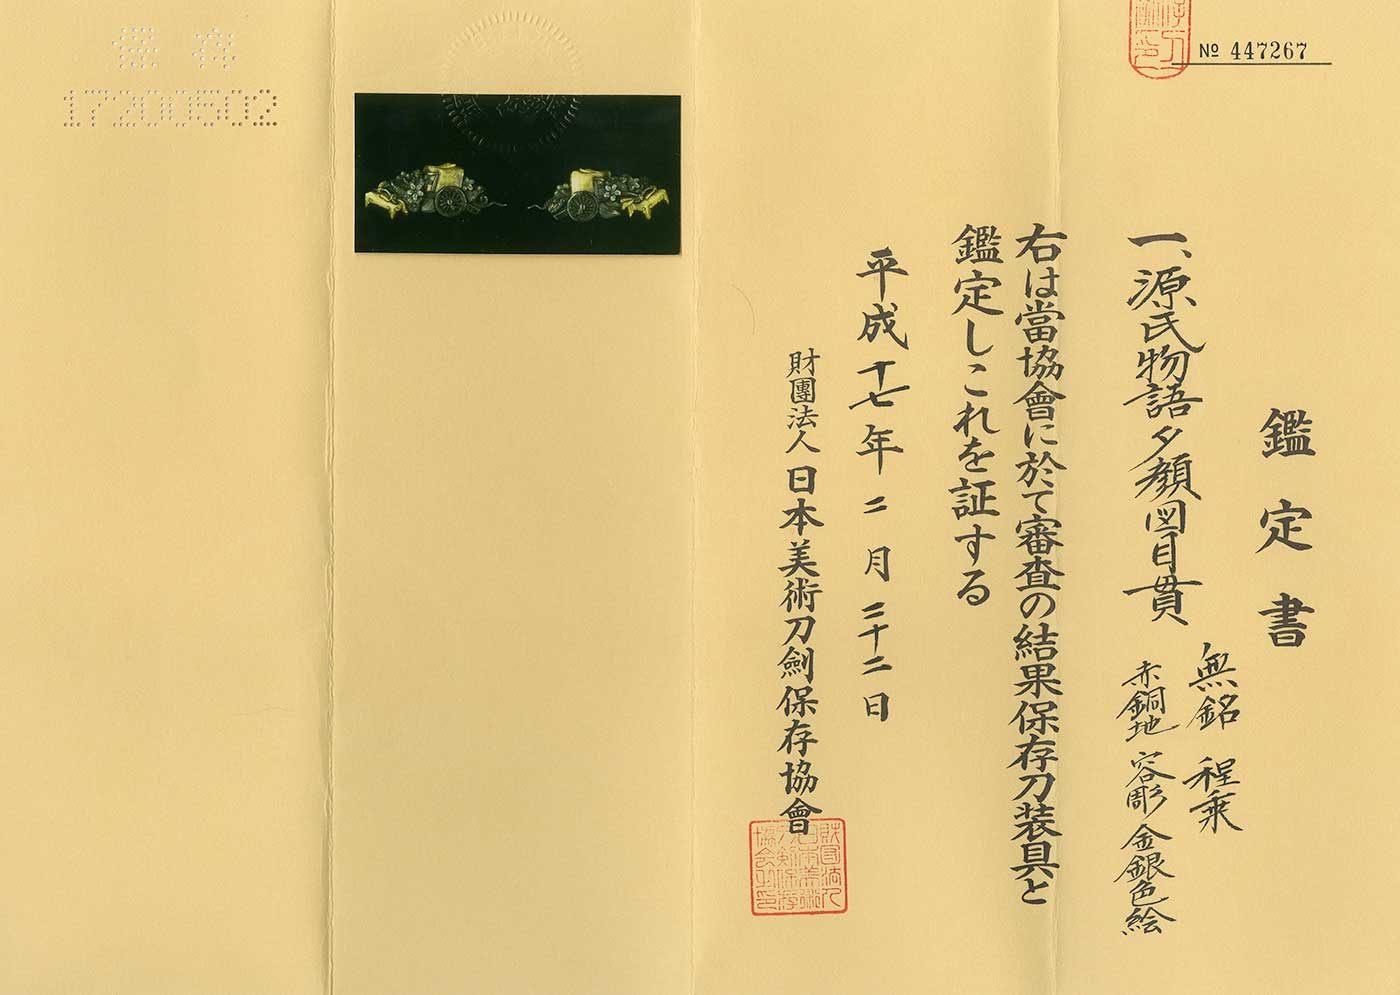 № 447267
鑑定書
一、源氏物語夕顔図目貫
無銘 程乗
赤銅地 容彫 金銀色絵
右は當協會に於て審査の結果保存刀装具と
鑑定しこれを証する
平成十七年二月二十二日
財團法人 日本美術刀劍保存協會
保存
17200502